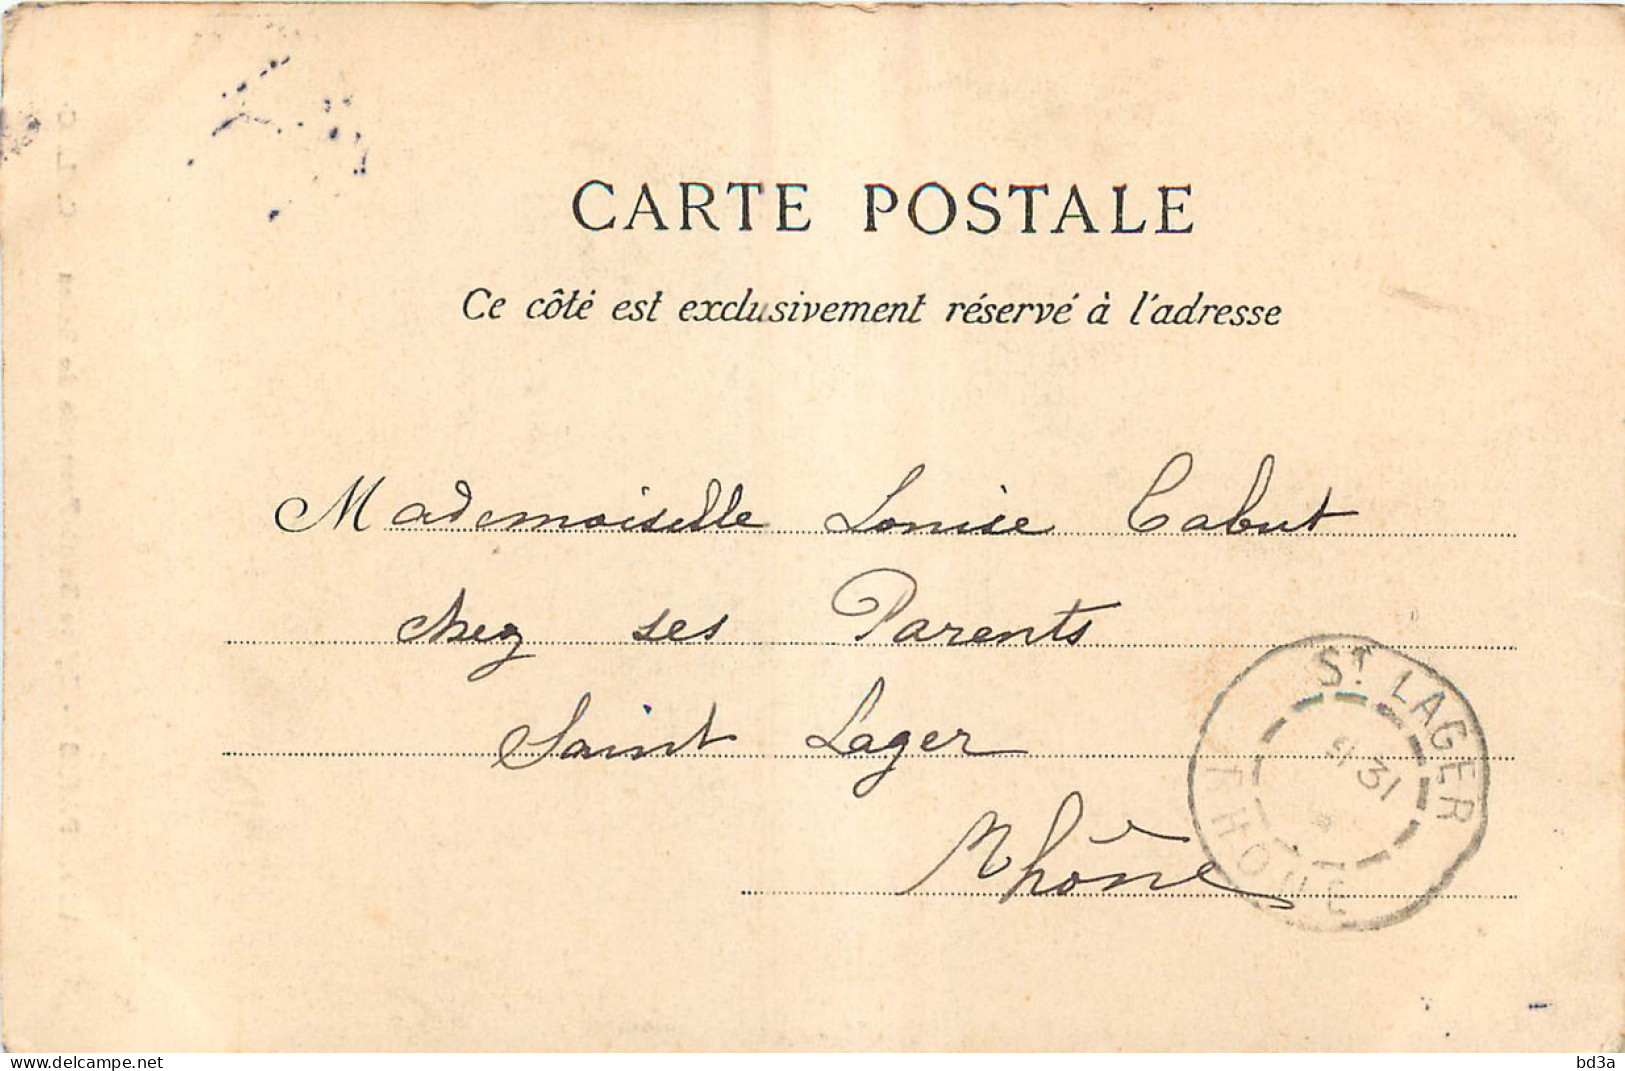 CARTE POSTALE
Ce côté est exclusivement réservé à l'adresse
Mademoiselle Louise Cabut
chez ses Parents
Saint Lager
Rhône
ST. LAGER
31
RHONE
delcampe.net
bd3a